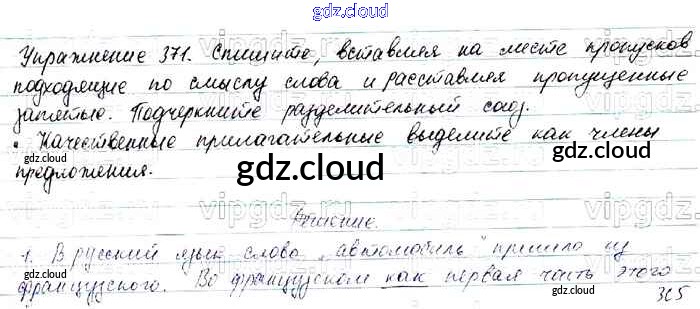 gdz.cloud
Упражнение 371. Спишите, вставляя на месте пропусков
подходящие по смыслу слова и расставляя пропущенные
запятые. Подчеркните разделительный союз.
• Качественные прилагательные выделите как члены
gdz.cloud gdz.cloud gdz.cloud
предложения.
Решение.
1. В русский язык слово „автомобиль" пришло из
gdz.cloud gdz.cloud
французского. Во французском как первая часть этого
365